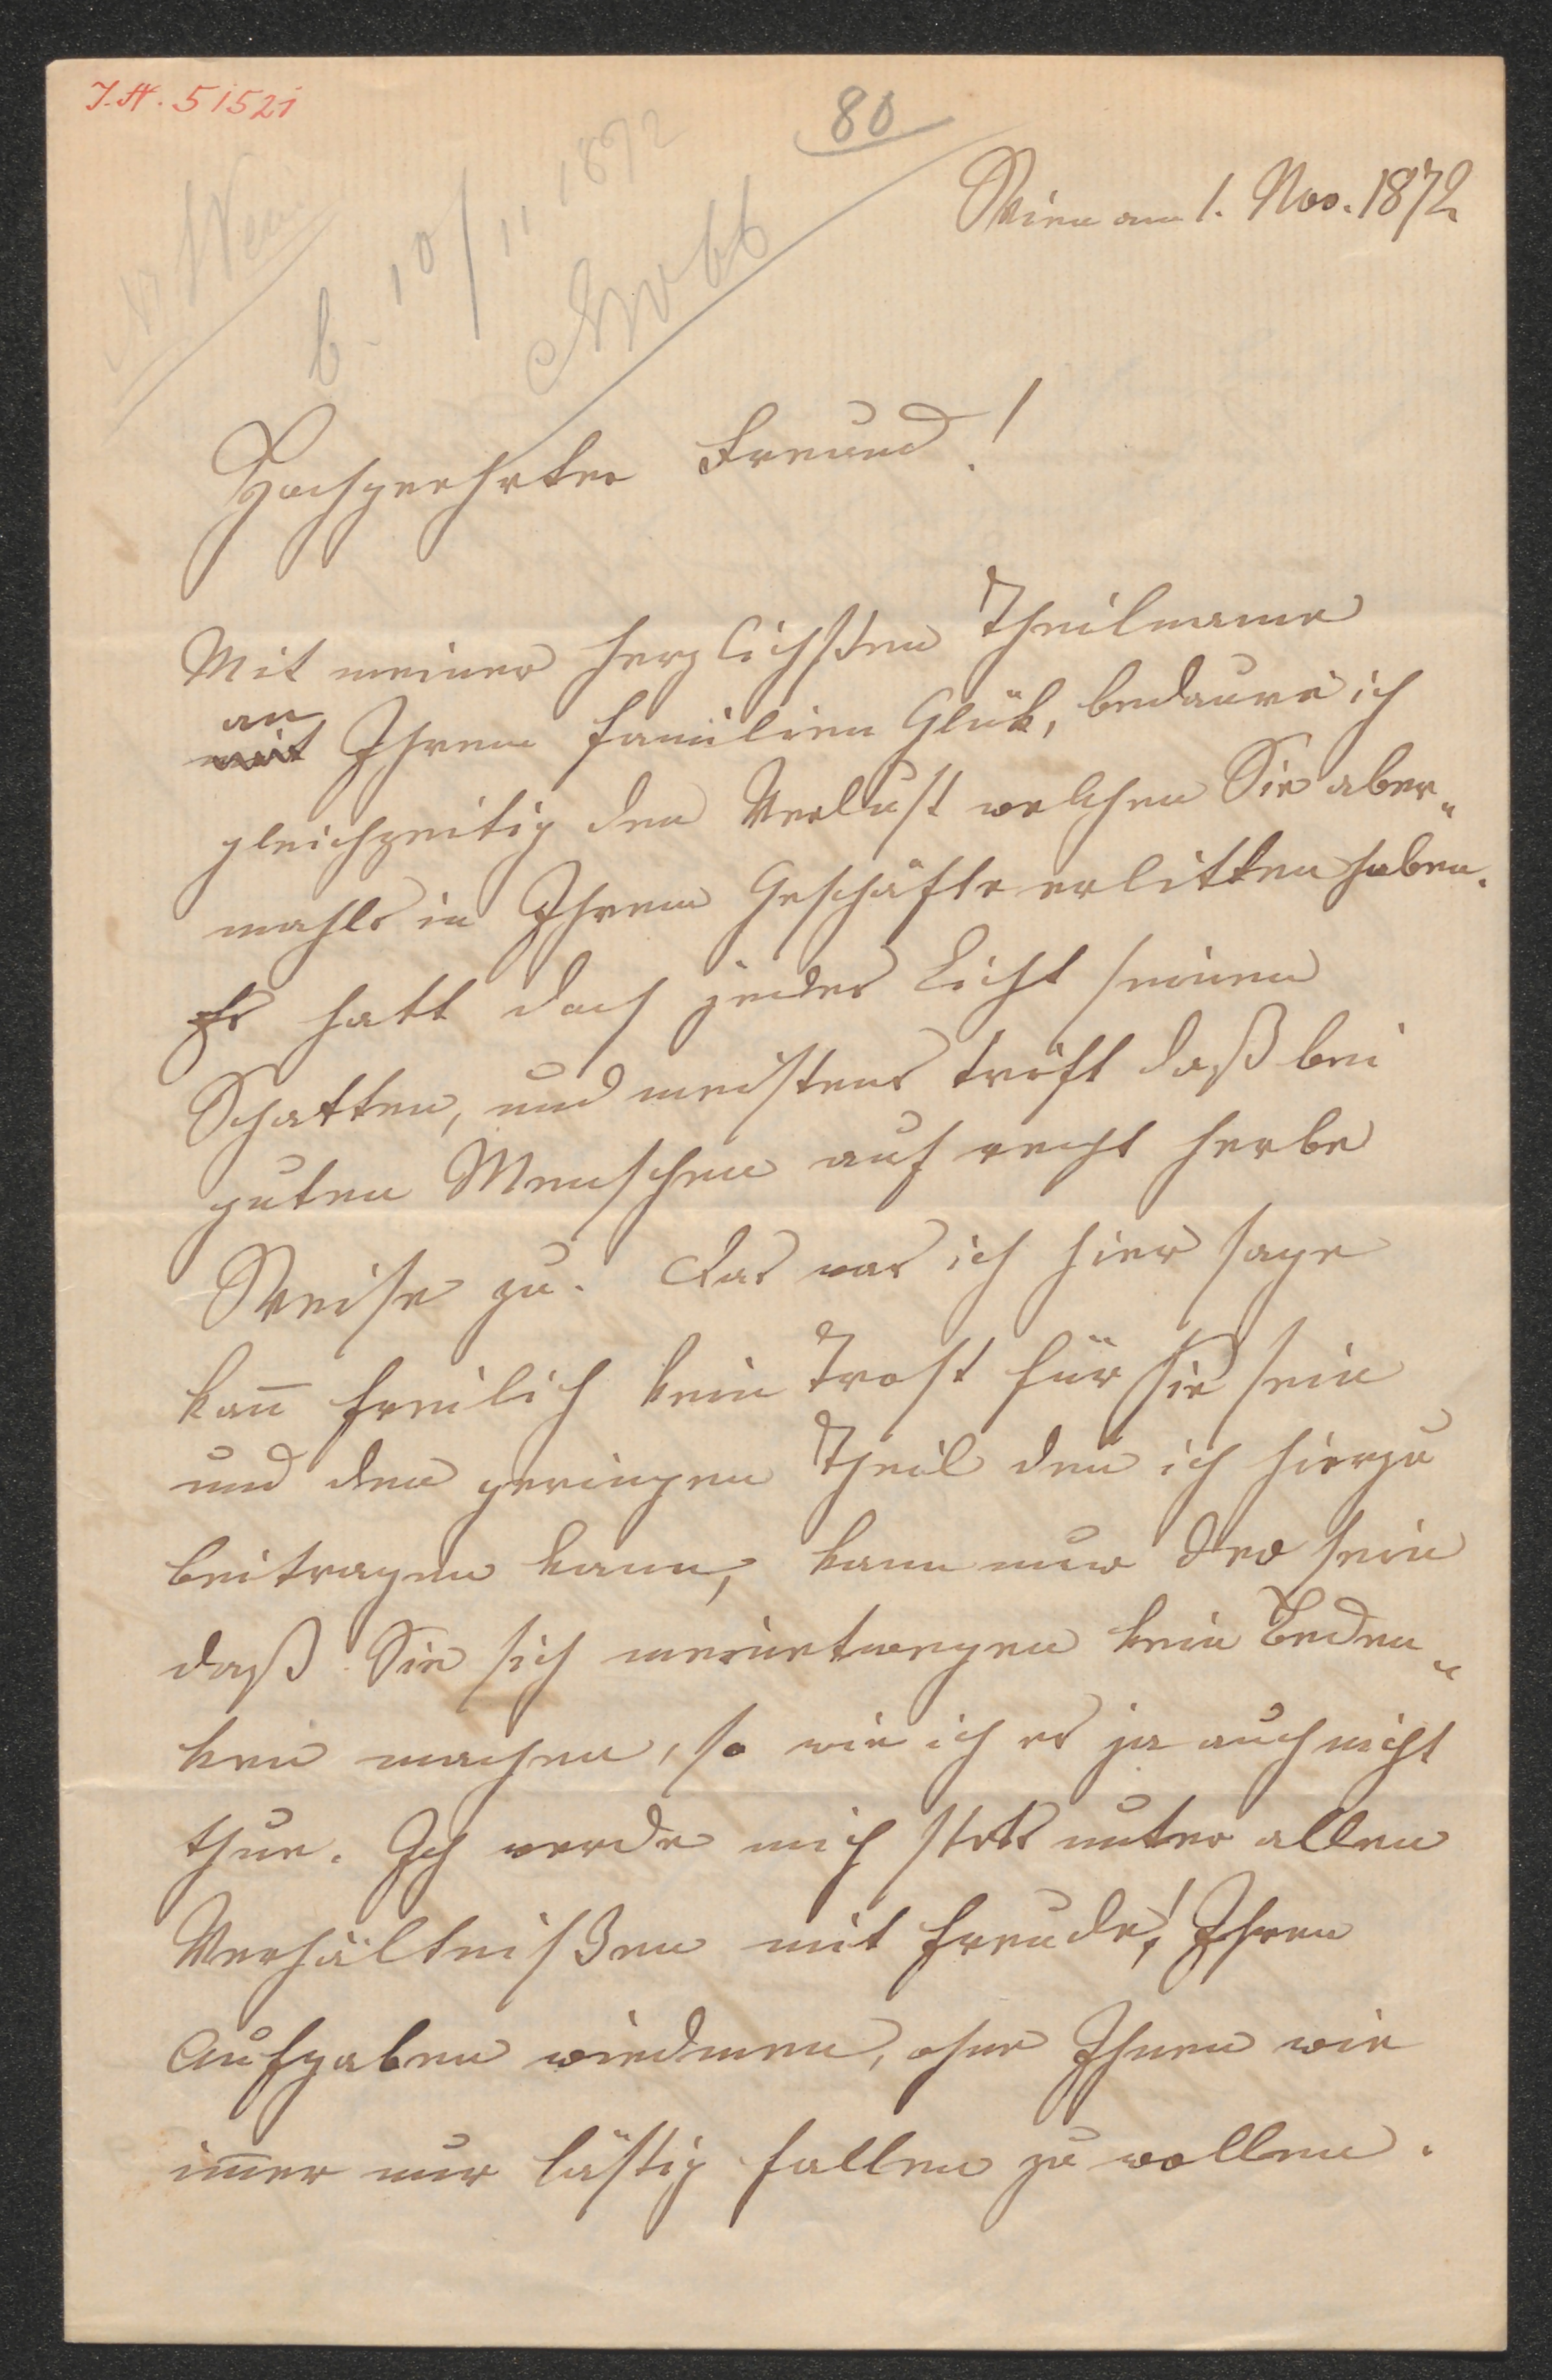 J.N. 51521
80
b. 10/11 1872
Wien am 1. Nov. 1872
Hochgeehrter Freund!
Mit meiner herzlichsten Theilname
an
mit Ihrem familien Glük, bedaure ich
gleichzeitig den Verlust welchen Sie aber„
mahls in Ihrem Geschäfte erlitten haben.
Es hatt doch jedes Licht seinen
Schatten, und meistens trifft daß bei
guten Menschen auf recht herbe
Weise zu. Das was ich hier sage
kan̅ freilich kein Trost für Sie sein
und den geringen Theil den ich hierzu
beitragen kann, kann nur der sein
daß Sie sich meinetwegen kein Beden„
ken machen, so wie ich es ja auch nicht
thue. Ich werde mich stets unter allen
Verhältnißen mit Freude! Ihren
Aufgaben wiedmen, ohne Ihnen wie
im̅er nur lästig fallen zu wollen.